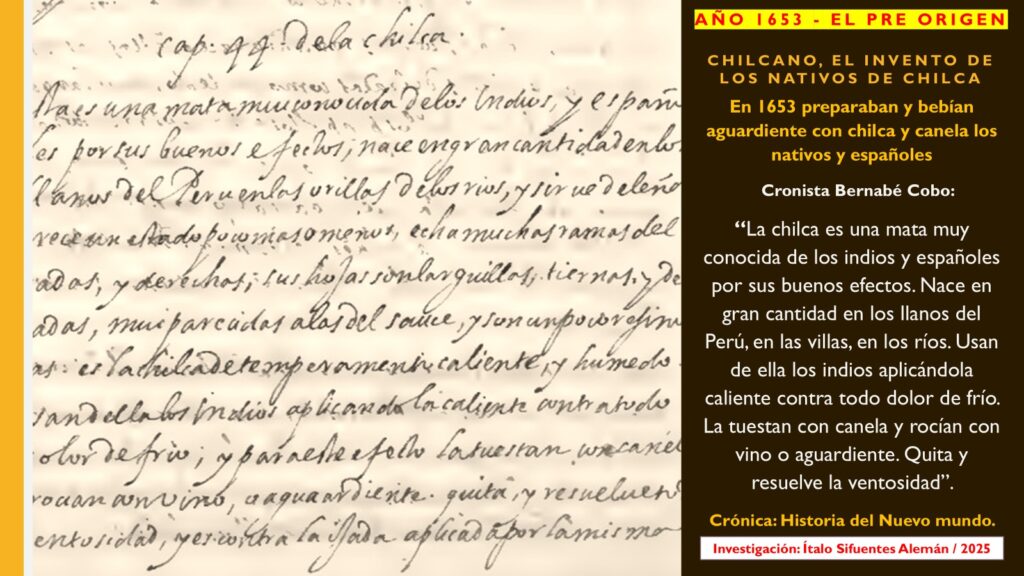 cap. 44 de la chilca.
es una mata mui conocida de los Indios, y españ
les por sus buenos efectos; nace en gran cantidad en los
llanos del Peru en las orillas de los rios, y sirve de leña
rece un estado poco mas o menos, echa muchas ramas del
adas, y derechas; sus hojas son larguillas, tiernas, y de
adas, mui parecidas a las del sauce, y son un poco resino
as: es la chilca de temperamento caliente, y humedo
san della los Indios aplicandola caliente contra todo
olor de frio; y para este efecto la tuestan con canel
rocian con vino, o aguardiente. quita, y resuelve to
entosidad, y es contra la ijada aplicada por la misma
AÑO 1653 - EL PRE ORIGEN
CHILCANO, EL INVENTO DE
LOS NATIVOS DE CHILCA
En 1653 preparaban y bebían
aguardiente con chilca y canela los
nativos y españoles
Cronista Bernabé Cobo:
“La chilca es una mata muy
conocida de los indios y españoles
por sus buenos efectos. Nace en
gran cantidad en los llanos del
Perú, en las villas, en los ríos. Usan
de ella los indios aplicándola
caliente contra todo dolor de frío.
La tuestan con canela y rocían con
vino o aguardiente. Quita y
resuelve la ventosidad”.
Crónica: Historia del Nuevo mundo.
Investigación: Ítalo Sifuentes Alemán / 2025